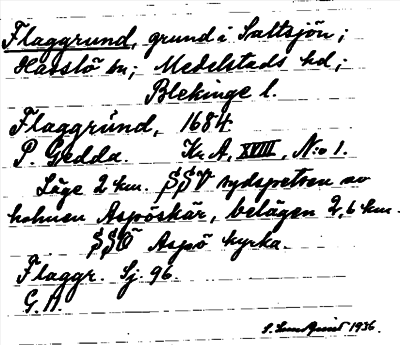 Flaggrund, grund i Saltsjön;
Hasslö sn; Medelstads hd;
Blekinge l.
Flaggrund, 1684
P. Gedda. Kr. A, XVIII, N:o 1.
Läge 2 km. SSV sydspetsen av
holmen Aspöskär, belägen 2,6 km.
SSO Aspö kyrka.
Flaggr. Sj. 96.
G. A.
S. Lundquist 1936.